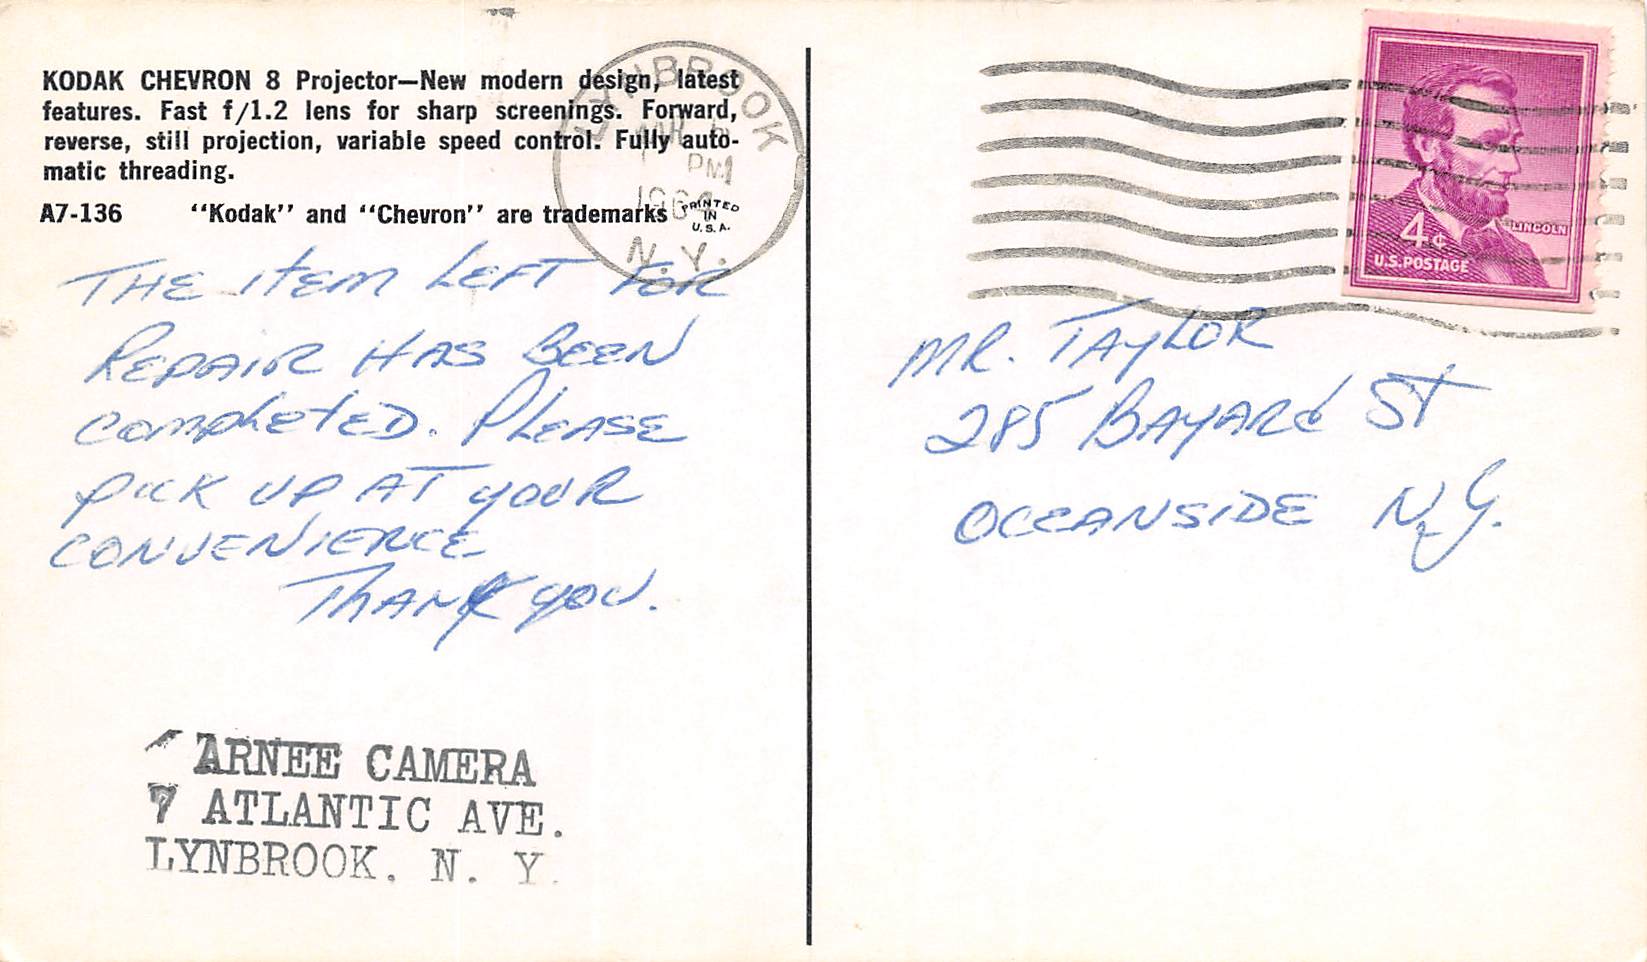 KODAK CHEVRON 8 Projector—New modern design, latest
features. Fast f/1.2 lens for sharp screenings. Forward,
reverse, still projection, variable speed control. Fully auto-
matic threading.
A7-136 "Kodak" and "Chevron" are trademarks
PRINTED
IN
U.S.A.
LYNBROOK
PM
N.Y.
THE ITEM LEFT FOR
REPAIR HAS BEEN
COMPLETED. PLEASE
PICK UP AT YOUR
CONVENIENCE
THANK YOU.
ARNEE CAMERA
7 ATLANTIC AVE.
LYNBROOK, N. Y.
LINCOLN
4¢
U.S. POSTAGE
MR. TAYLOR
285 BAYARd ST
OCEANSIDE N.Y.